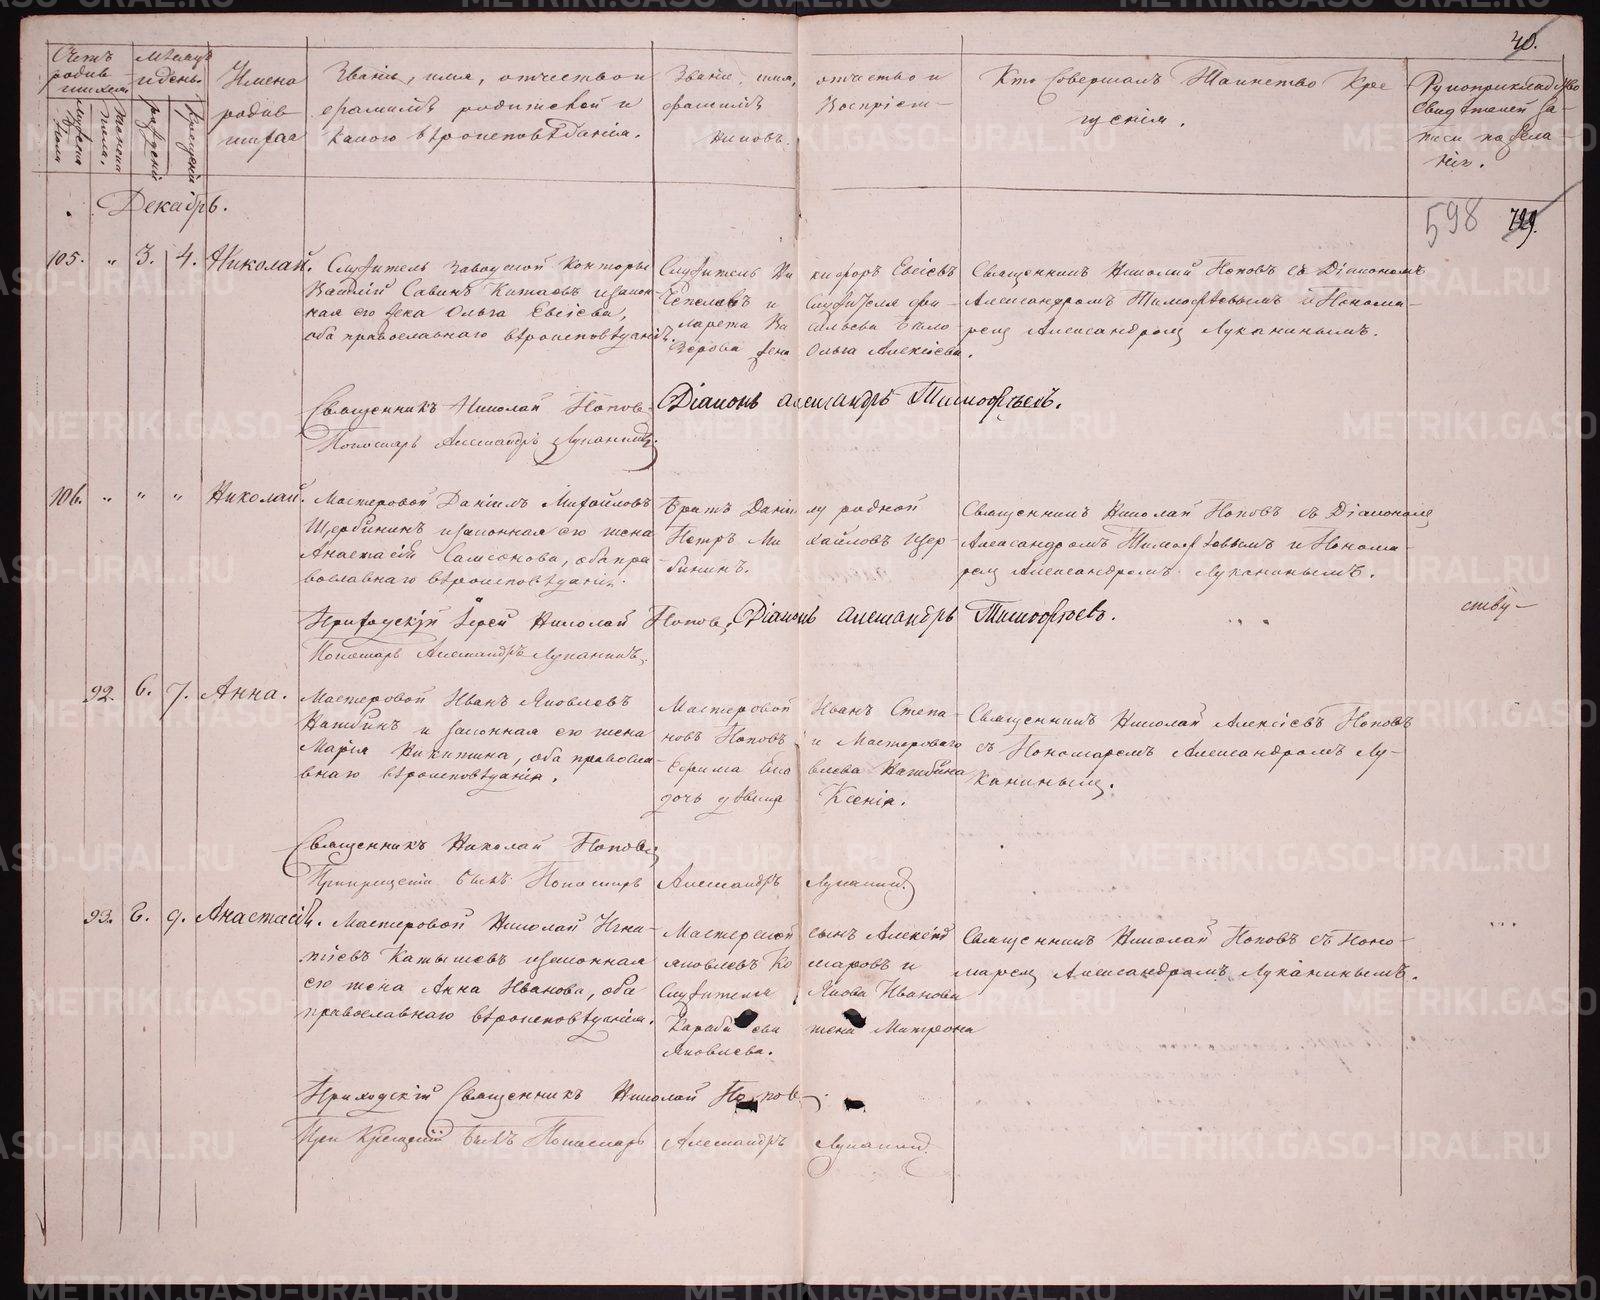 40.
Счетъ родив-шихся
Мѣсяцъ и день.
Имена родив-шихся
Званіе, имя, отчество и фамилія родителей и какого вѣроисповѣданія.
Званіе, имя, отчество и фамилія Воспріем-никовъ.
Кто совершалъ Таинство Кре-щенія.
Рукоприкладство свидѣтелей за-писи по жела-нію.
мужеска пола
женска пола.
рожденія
крещенія
Декабрь.
598
105. " 3. 4. Николай.
Служитель заводской конторы
Василій Савинъ Китаевъ и закон-
ная его жена Ольга Евсіева,
оба православнаго вѣроисповѣданія.
Служитель Ни кифоръ Евсіевъ
и Служителя Фи-
ларета Ва сильева Бѣло
зерова жена Ольга Алексіева.
Священникъ Николай Поповъ съ Діакономъ
Александромъ Тимофѣевымъ и Понома-
ремъ Александромъ Луканинымъ.
Священникъ Николай Поповъ
Діаконъ Александръ Тимофѣевъ.
Пономарь Александръ Луканинъ.
106. " " " Николай.
Мастеровой Даніилъ Михайловъ
Щербининъ и законная его жена
Анастасія Самсонова, оба пра-
вославнаго вѣроисповѣданія.
Братъ Даніи лу родной
Петръ Ми хайловъ Щер-
бининъ.
Священникъ Николай Поповъ съ Діакономъ
Александромъ Тимофѣевымъ и Понома-
ремъ Александромъ Луканинымъ.
ству-
Приходскій Іерей Николай Поповъ, Діаконъ Александръ Тимофѣевъ.
Пономарь Александръ Луканинъ.
92. 6. 7. Анна.
Мастеровой Иванъ Яковлевъ
и законная его жена
Марія Никитина, оба правосла-
внаго вѣроисповѣданія.
Мастеровой Иванъ Степа-
новъ Поповъ и Мастероваго
дочь дѣвица Ксенія.
Священникъ Николай Алексіевъ Поповъ
съ Пономаремъ Александромъ Лу-
канинымъ.
Священникъ Николай Поповъ
При крещеніи былъ Пономарь Александръ Луканинъ
93. 6. 9. Анастасія.
Мастеровой Николай Игна-
тіевъ Катышевъ и законная
его жена Анна Иванова, оба
православнаго вѣроисповѣданія.
Мастерской сынъ Алексѣй
Яковлевъ Ко маровъ и
Служителя Якова Иванова
жена Матрона
Яковлева.
Священникъ Николай Поповъ съ Поно-
маремъ Александромъ Луканинымъ.
Приходскій Священникъ Николай Поповъ
При крещеніи былъ Пономарь Александръ Луканинъ.
METRIKI.GASO-URAL.RU